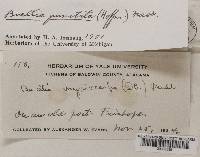 Buellia punctata (Hoffm.) Mass.
Annotated by H. A. Imshaug, 1951
Herbarium of the University of Michigan
HERBARIUM OF YALE UNIVERSITY
LICHENS OF BALDWIN COUNTY, ALABAMA
Buellia
On wooden post. Fairhope.
COLLECTED BY ALEXANDER W. EVANS, Nov. 25,